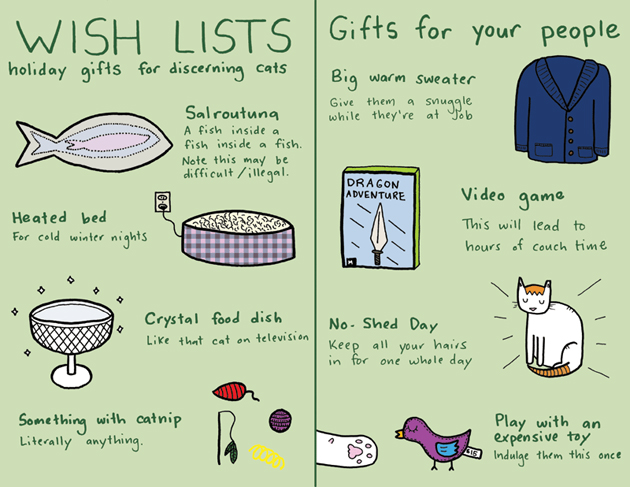 WISH LISTS
holiday gifts for discerning cats
Salroutuna
A fish inside a
fish inside a fish.
Note this may be
difficult/illegal.
Heated bed
For cold winter nights
Crystal food dish
Like that cat on television
Something with catnip
Literally anything.
Gifts for your people
Big warm sweater
Give them a snuggle
while they're at job
DRAGON
ADVENTURE
Video game
This will lead to
hours of couch time
No-Shed Day
Keep all your hairs
in for one whole day
Play with an
expensive toy
Indulge them this once